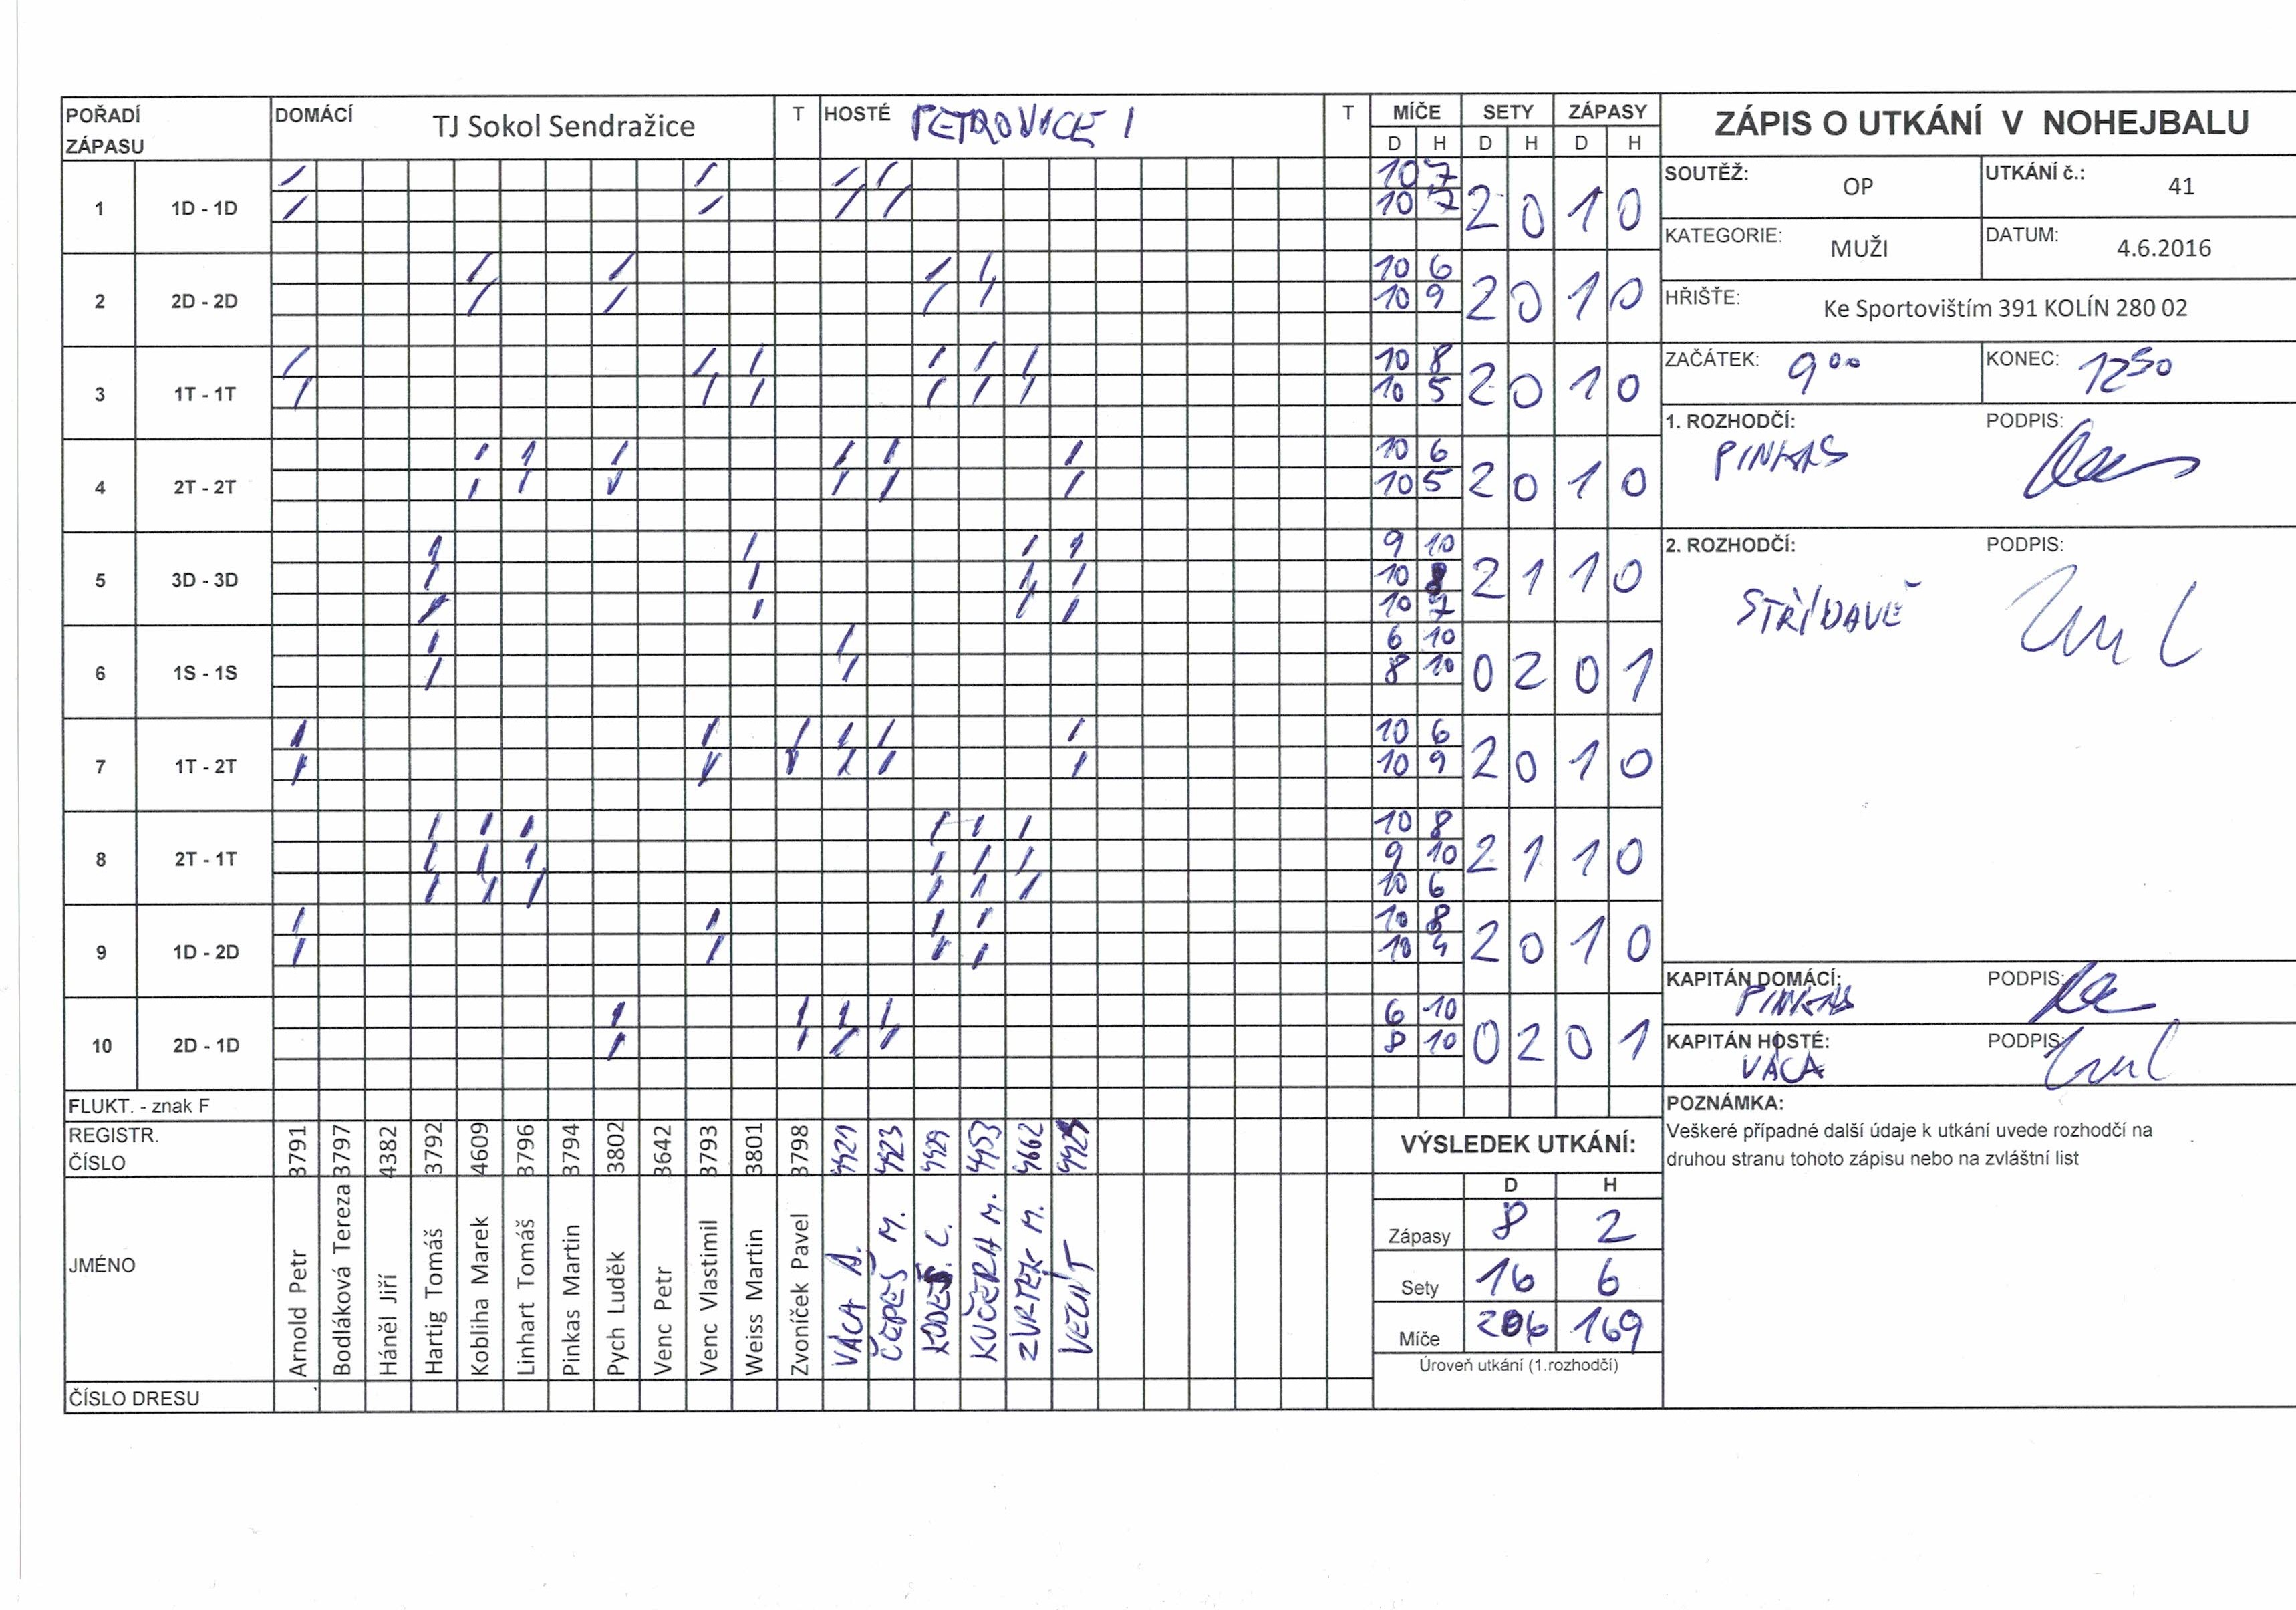 POŘADÍ ZÁPASU DOMÁCÍ TJ Sokol Sendražice T HOSTÉ PETROVICE I T MÍČE SETY ZÁPASY
D H D H D H
1 1D - 1D 10 7 2 0 1 0
10 7
2 2D - 2D 10 6 2 0 1 0
10 9
3 1T - 1T 10 8 2 0 1 0
10 5
4 2T - 2T 10 6 2 0 1 0
10 5
5 3D - 3D 9 10 2 1 1 0
10 8
10 7
6 1S - 1S 6 10 0 2 0 1
8 10
7 1T - 2T 10 6 2 0 1 0
10 9
8 2T - 1T 10 8 2 1 1 0
9 10
10 6
9 1D - 2D 10 8 2 0 1 0
10 4
10 2D - 1D 6 10 0 2 0 1
8 10
FLUKT. - znak F
REGISTR. ČÍSLO 3791 3797 4382 3792 4609 3796 3794 3802 3642 3793 3801 3798 4421 4423 4429 4453 4662
JMÉNO Arnold Petr Bodláková Tereza Háněl Jiří Hartig Tomáš Kobliha Marek Linhart Tomáš Pinkas Martin Pych Luděk Venc Petr Venc Vlastimil Weiss Martin Zvoníček Pavel VÁCA A. ČEPEŠ M. KUČERA M. ZVRTEK M.
ČÍSLO DRESU
VÝSLEDEK UTKÁNÍ:
D H
Zápasy 8 2
Sety 16 6
Míče 206 169
Úroveň utkání (1.rozhodčí)
ZÁPIS O UTKÁNÍ V NOHEJBALU
SOUTĚŽ: OP UTKÁNÍ č.: 41
KATEGORIE: MUŽI DATUM: 4.6.2016
HŘIŠTE: Ke Sportovištím 391 KOLÍN 280 02
ZAČÁTEK: 9 00 KONEC: 12 50
1. ROZHODČÍ: PODPIS:
PINKAS
2. ROZHODČÍ: PODPIS:
STŘÍDAVĚ
KAPITÁN DOMÁCÍ: PODPIS:
PINKAS
KAPITÁN HOSTÉ: PODPIS:
VÁCA
POZNÁMKA:
Veškeré případné další údaje k utkání uvede rozhodčí na
druhou stranu tohoto zápisu nebo na zvláštní list